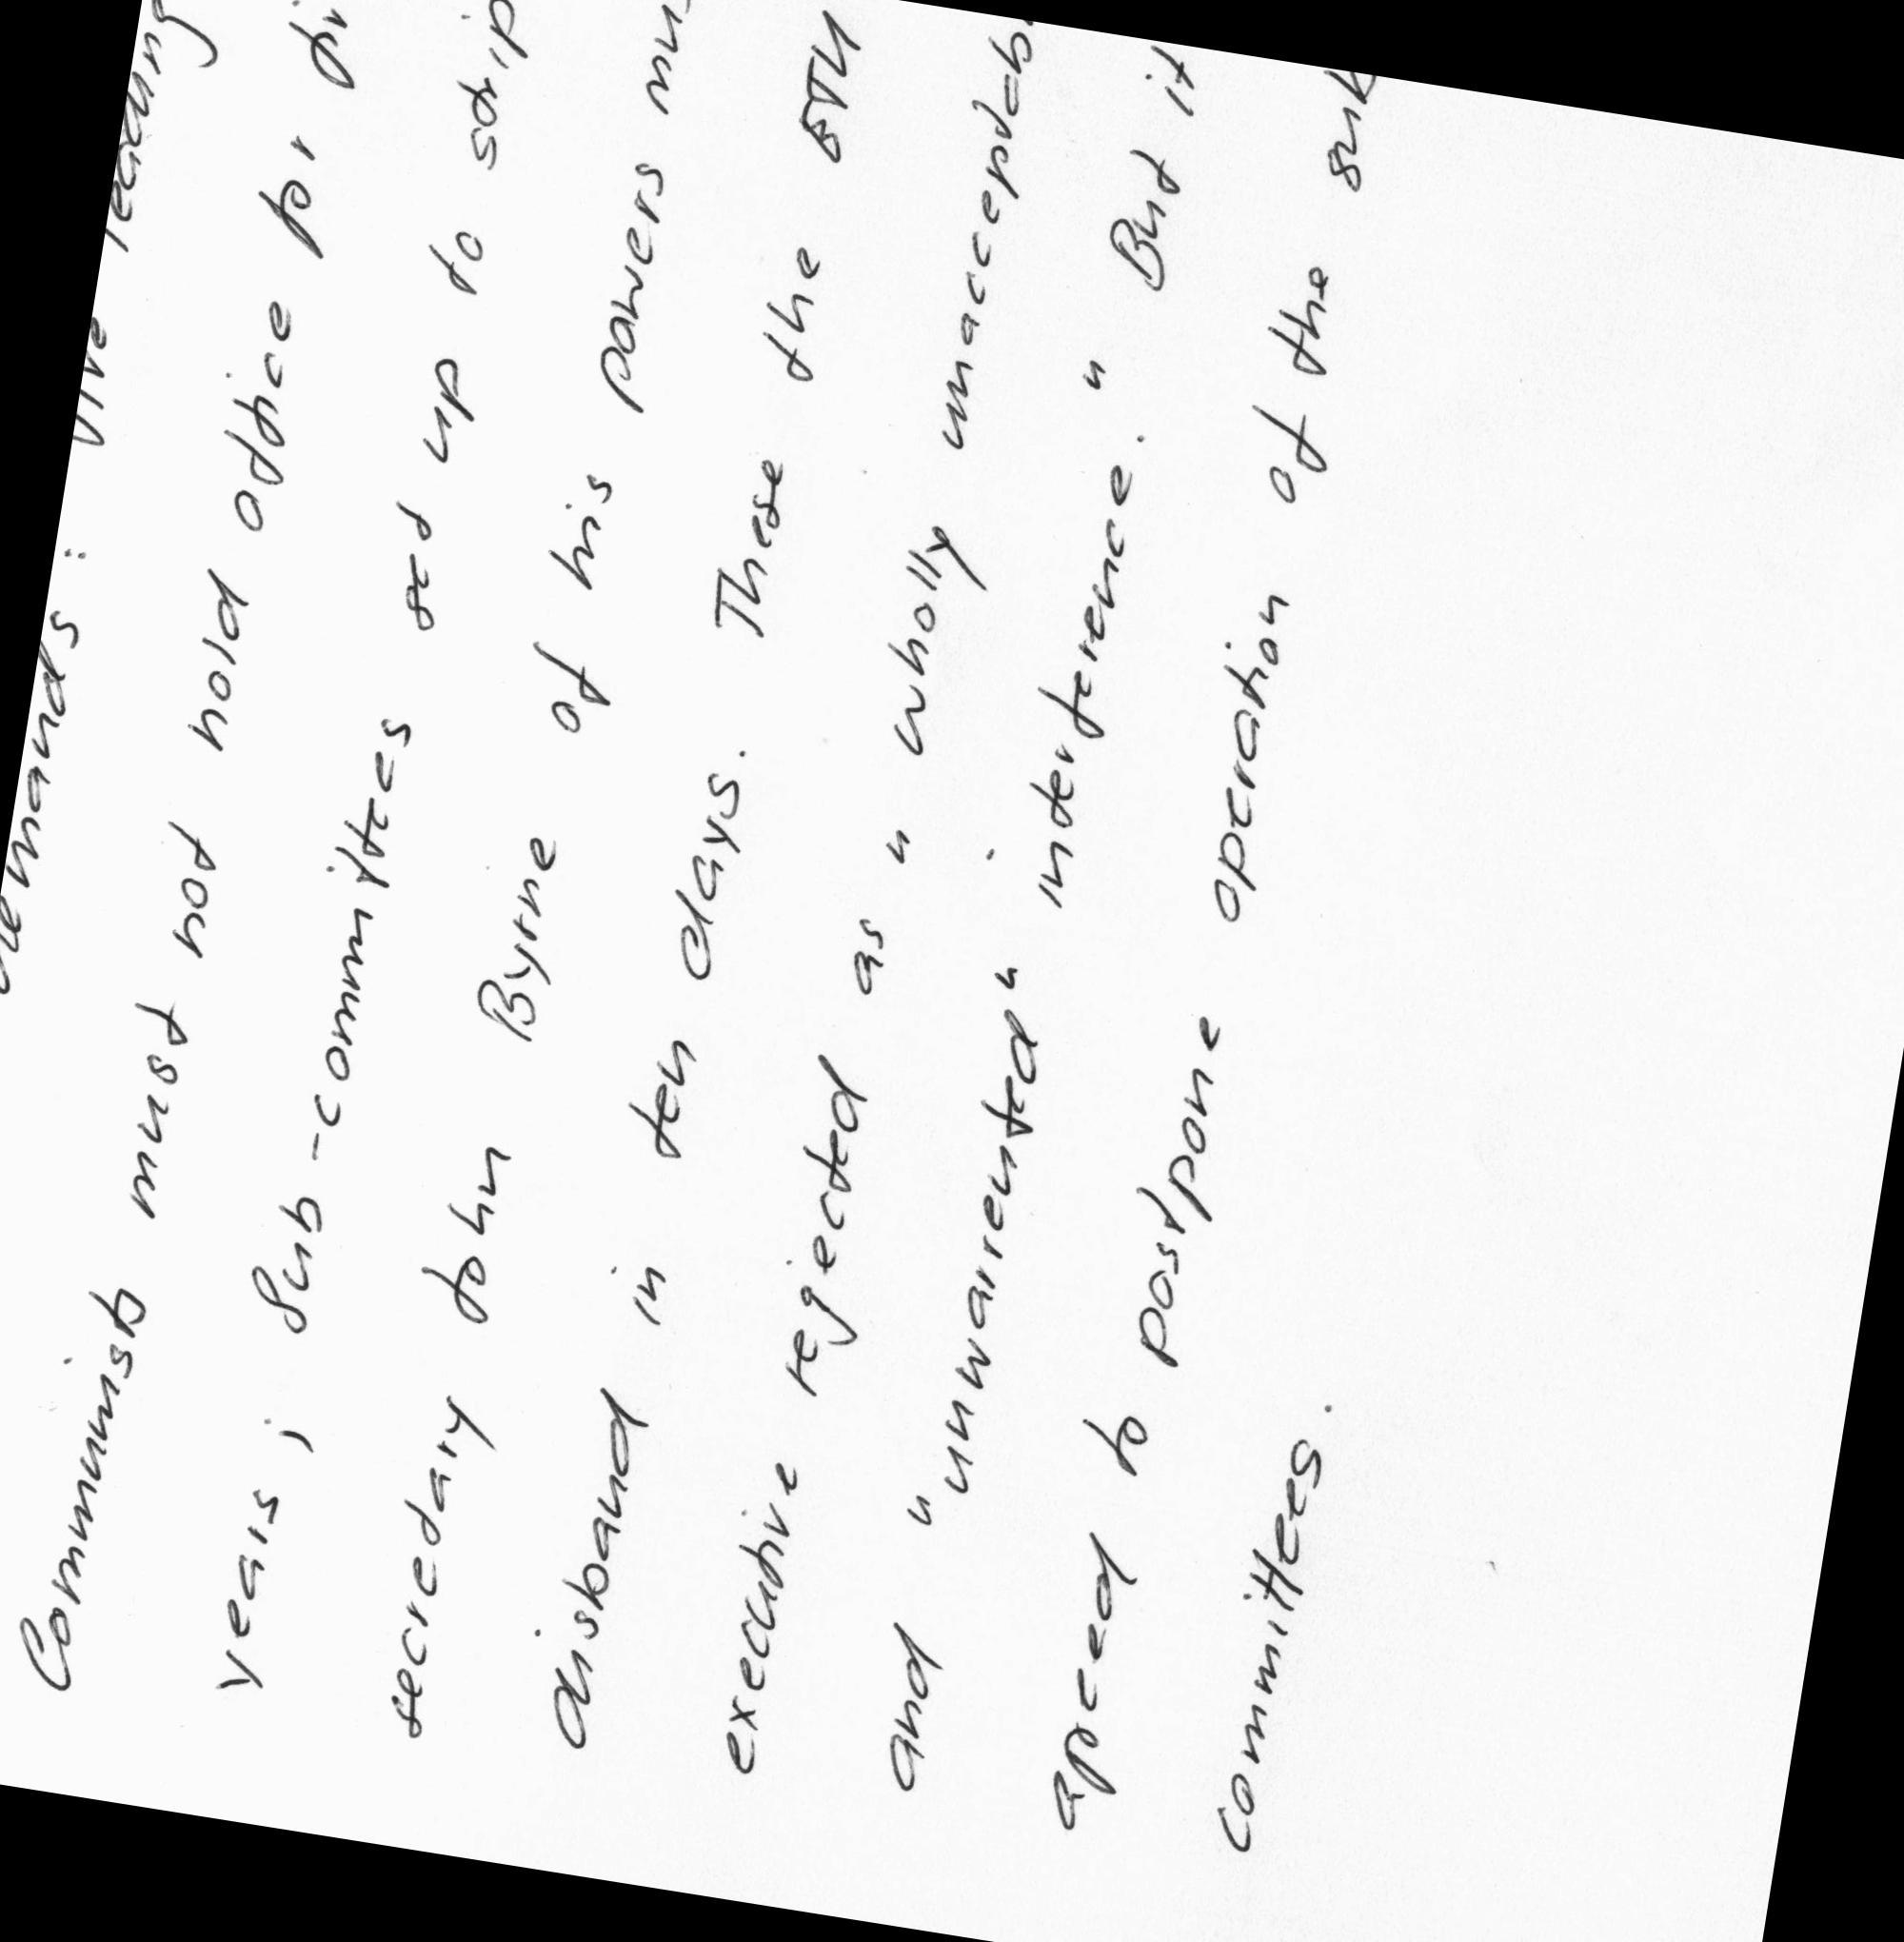 demands: Five leading
Communists must not hold office for fi
years; Sub-committes set up to strip
secretary John Byrne of his powers mu
disband in ten days. These the ETU
executive rejected as "wholly unacceptab
and "unwarrented" interference." But it
agreed to postpone operation of the sub
committees.